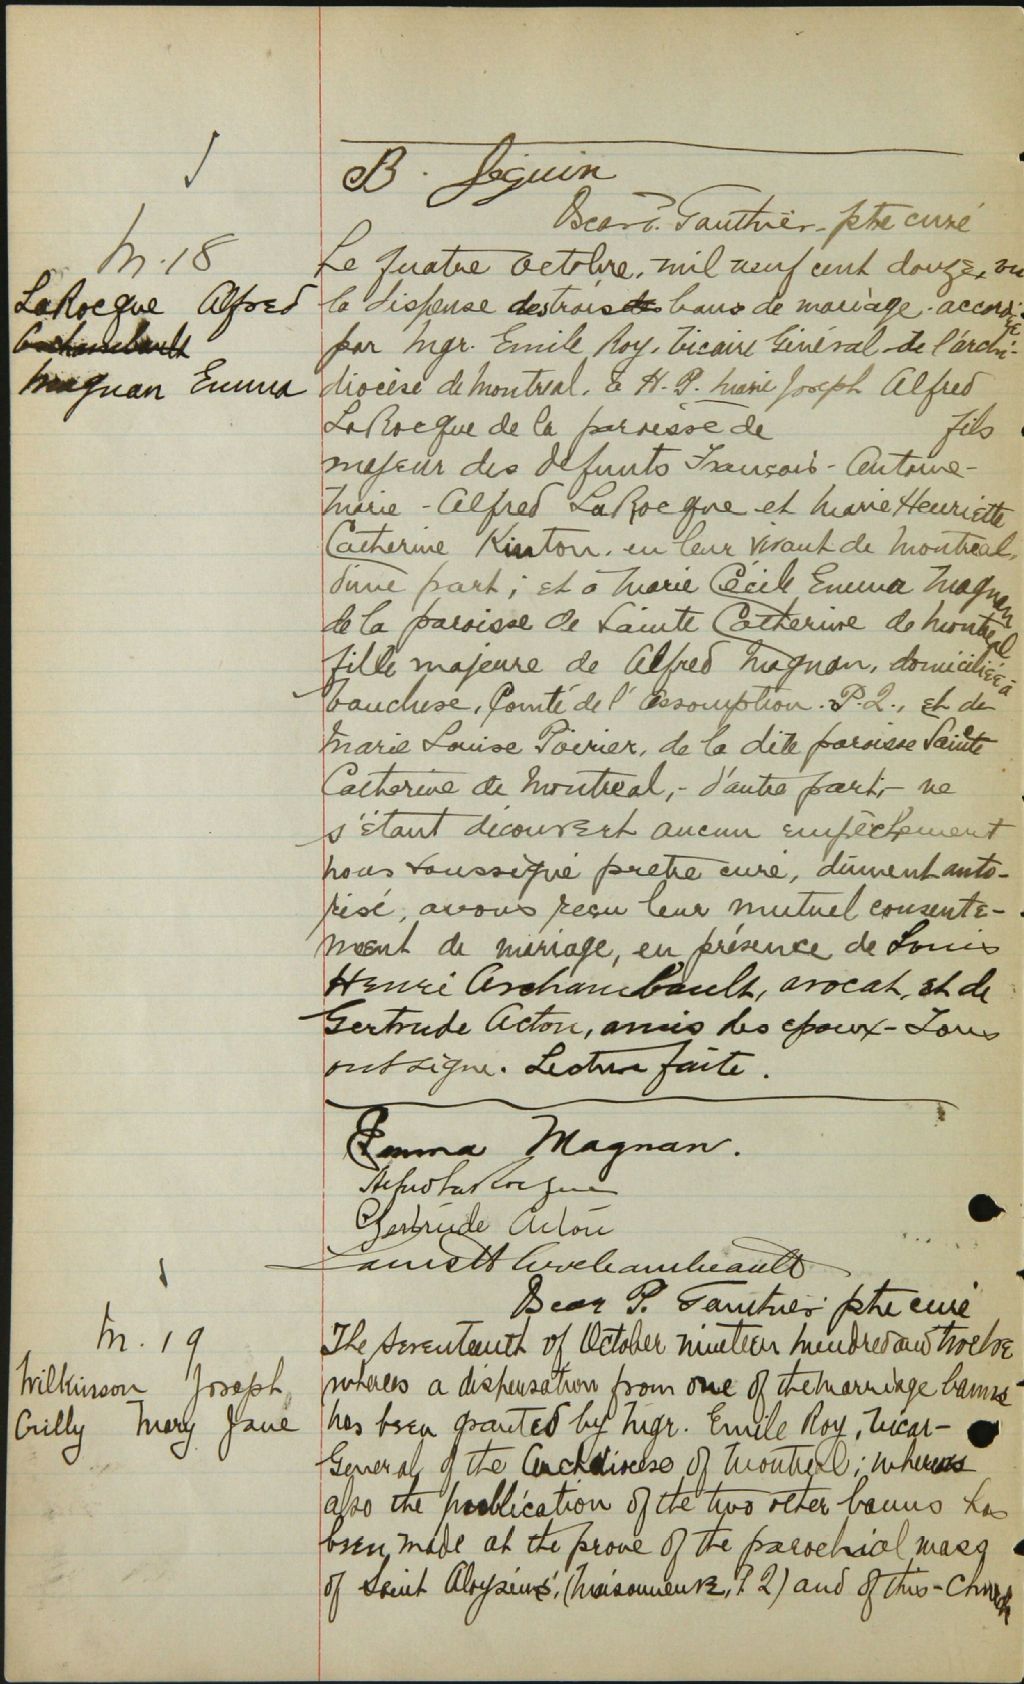 B. Séguin
Oscar P. Gauthier ptre curé
M. 18
LaRocque Alfred
Archambault
Magnan Emma
Le quatre Octobre, mil neuf cent douze, vu
la dispense des trois de bans de mariage accordée
par Mgr. Emile Roy, Vicaire Général de l'archi-
diocèse de Montréal, à H. P. Marie Joseph Alfred
LaRocque de la paroisse de fils
majeur des défunts François-Antoine-
Marie-Alfred LaRocque et Marie Henriette
Catherine Kinton, en leur vivant de Montréal,
d'une part; et à Marie Cécile Emma Magnan
de la paroisse de Sainte Catherine de Montréal
fille majeure de Alfred Magnan, domiciliée à
Vaucluse, Comté de l'Assomption. P.Q., et de
Marie Louise Poirier, de la dite paroisse Sainte
Catherine de Montréal,- d'autre part;- ne
s'étant découvert aucun empêchement
nous soussigné pretre curé, dûment auto-
risé, avons reçu leur mutuel consente-
ment de mariage, en présence de Louis
Henri Archambault, avocat, et de
Gertrude Acton, amis des époux-Tous
ont signé. Lecture faite.
Emma Magnan.
Alfred LaRocque
Gertrude Acton
Louis H Archambeault
Oscar P. Gauthier ptre curé
M. 19
Wilkinson Joseph
Crilly Mary Jane
The seventeenth of October nineteen hundred and twelve
whereas a dispensation from one of the marriage banns
has been granted by Mgr. Emile Roy, Vicar-
General of the Archdiocese of Montreal; whereas
also the publication of the two other banns has
been made at the prone of the parochial mass
of Saint Aloysius', (Maisonneuve, P.Q) and of this-Church